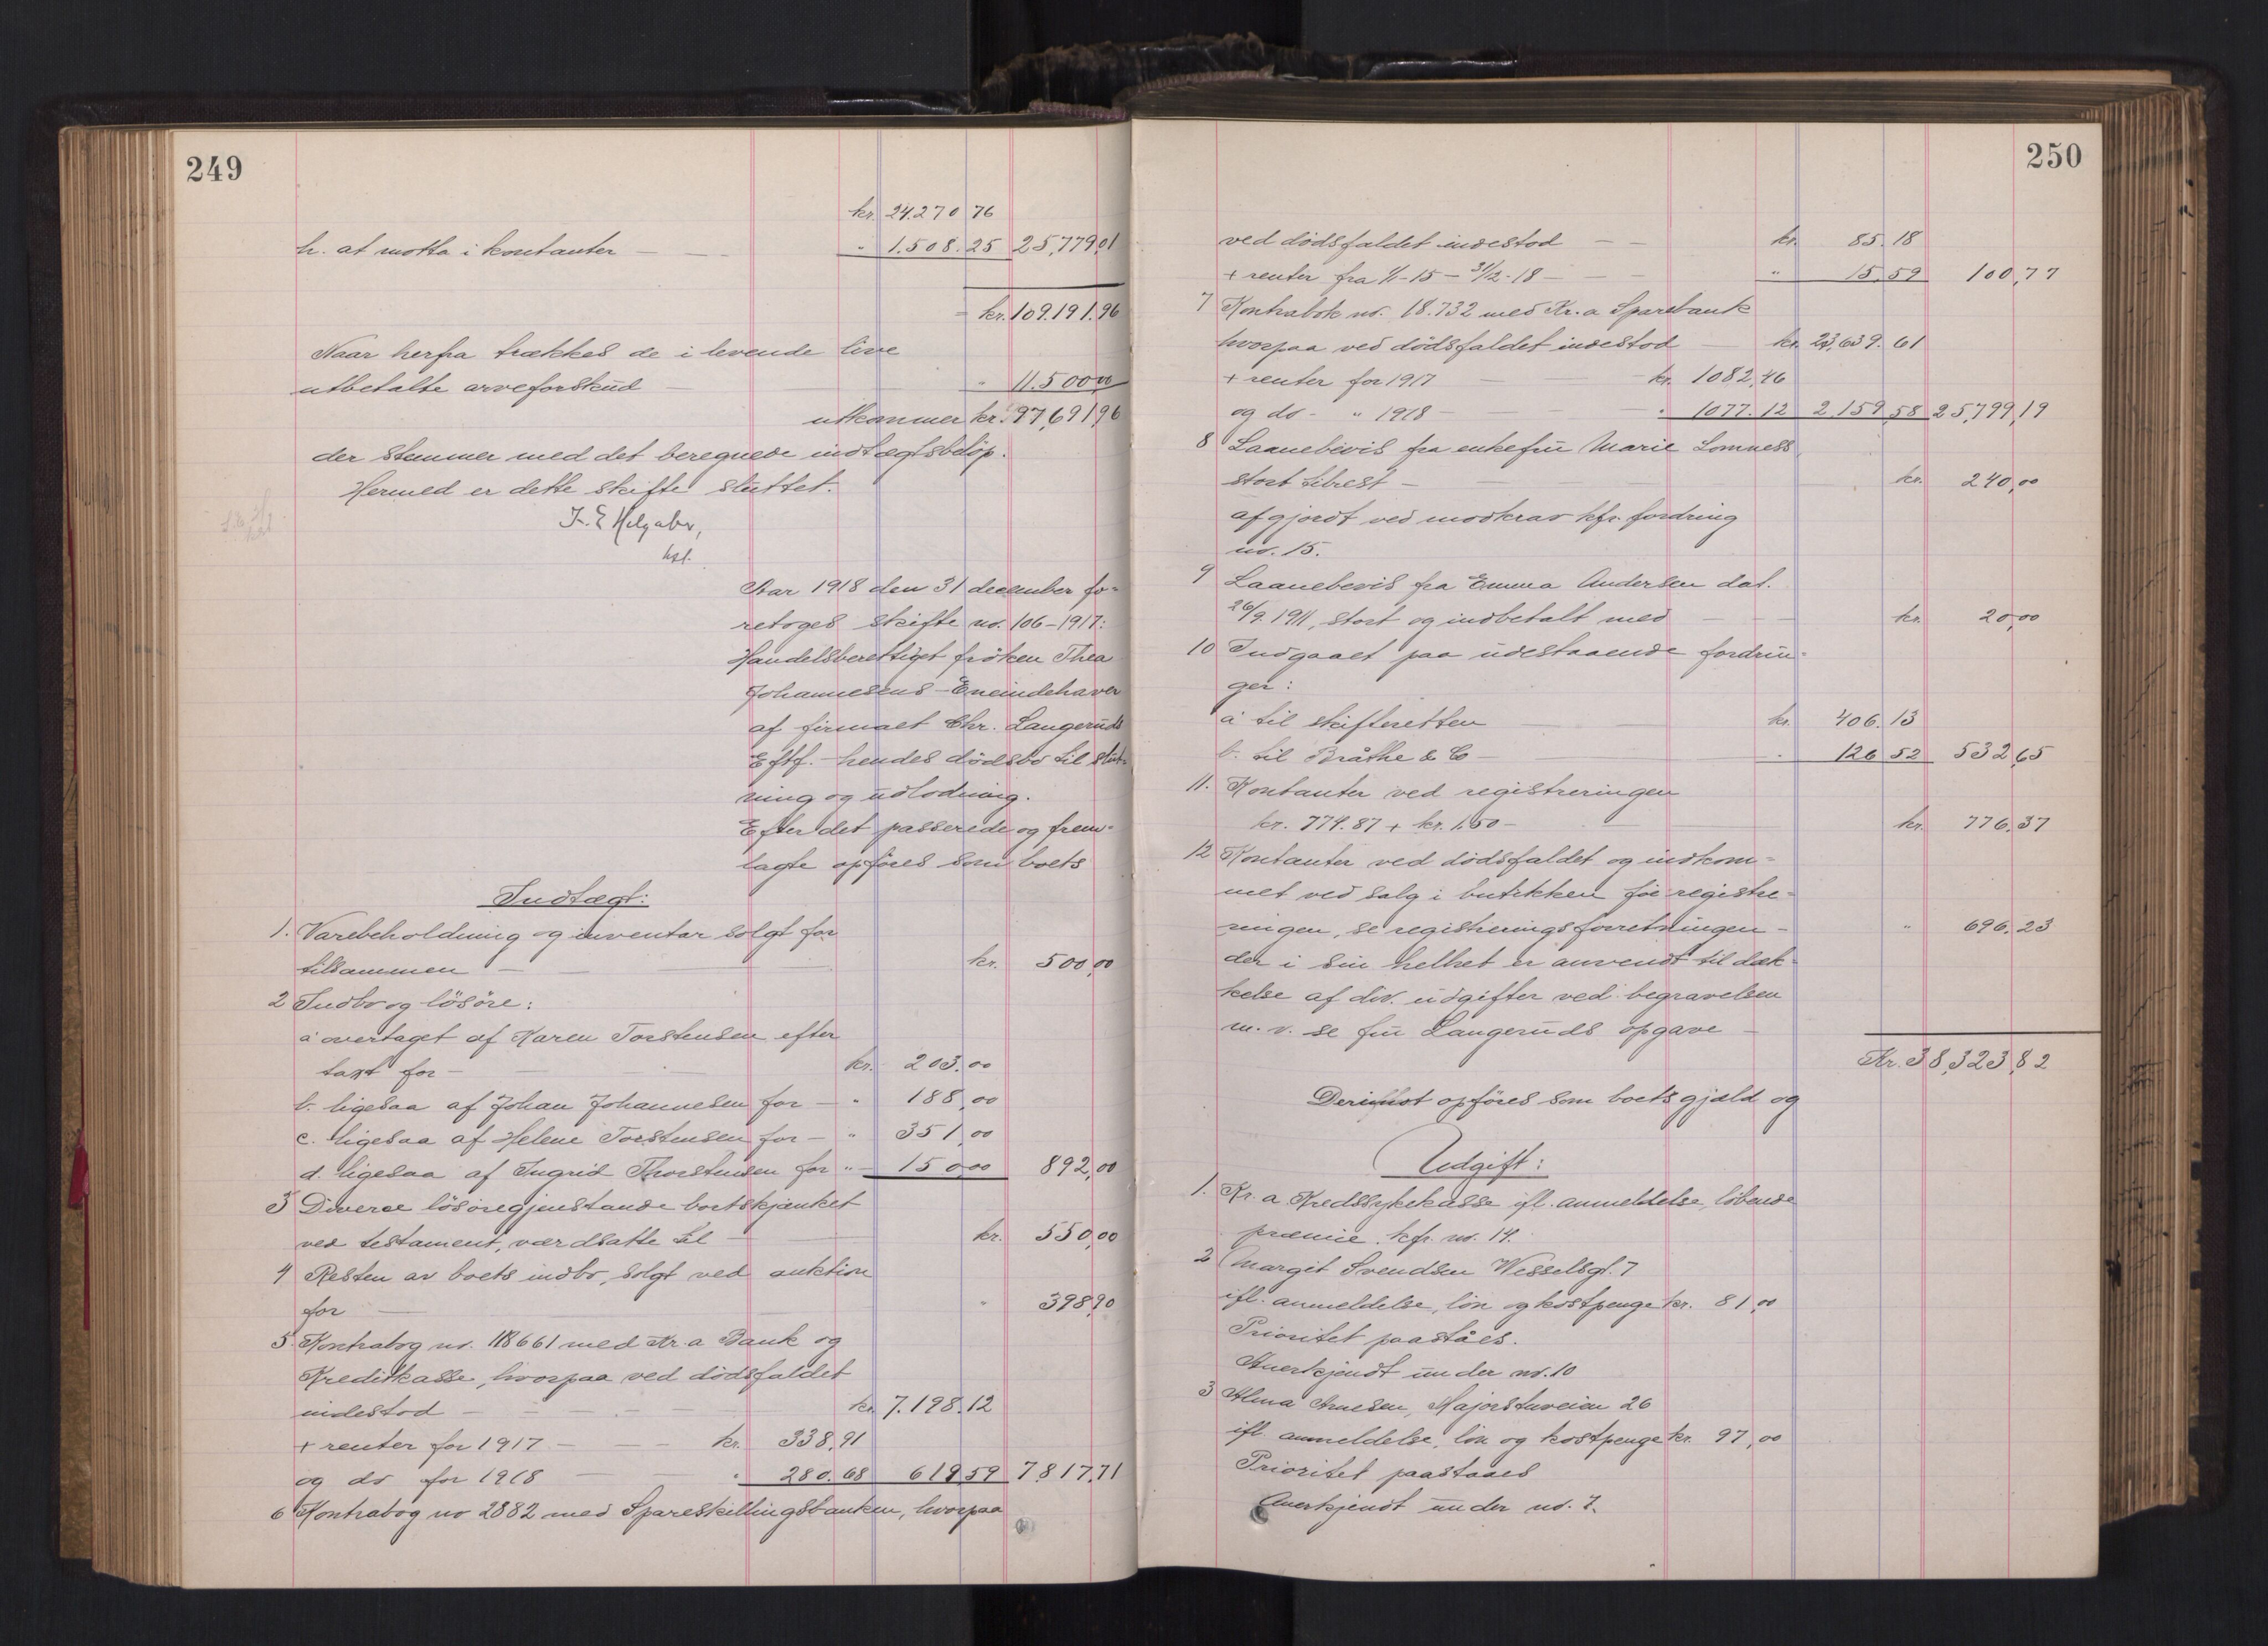 249
kr. 24.270 76
h. at motta i kontanter — — " 1.508.25 25,779,01
kr. 109.191.96
Naar herfra trækkes de i levende live
utbetalte arveforskud — " 11.500,00
utkommer kr. 97,691,96
der stemmer med det beregnede indtægtsbeløp.
Hermed er dette skifte sluttet.
Aar 1918 den 31 december fo-
retoges skifte no. 106-1917:
Handelsberettiget frøken Thea
Johannesens - Eneindehaver
af firmaet Chr. Langeruds
Eftf. - hendes dødsbo til slut-
ning og udlodning.
Efter det passerede og frem-
lagte opføres som boets
Indtægt:
1. Varebeholdning og inventar solgt for
tilsammen — kr. 500,00
2 Indbo og løsøre:
a overtaget af Karen Torstensen efter
taxt for — kr. 203.00
b. ligesaa af Johan Johannesen for — " 188,00
c. ligesaa af Helene Torstensen for — " 351,00
d. ligesaa af Ingrid Thorstensen for " 150,00 892,00
3 Diverse løsøregjenstande bortskjænket
ved testament, værdsatte til — kr. 550,00
4 Resten av boets indbo, solgt ved auktion
for — " 398,90
5. Kontrabog no. 118661 med Kr.a Bank og
Kreditkasse, hvorpaa ved dødsfaldet
indestod — kr. 7.198.12
+ renter for 1917 — kr. 338,91
og do for 1918 — " 280.68 619,59 7,817,71
6 Kontrabog no 2882 med Spareskillingsbanken, hvorpaa
250
ved dødsfaldet indestod — — kr. 85.18
+ renter fra 1/1-15 - 31/12-18 — " 15,59 100,77
7 Kontrabok no. 18.732 med Kr.a Sparebank
hvorpaa ved dødsfaldet indestod — kr. 23,639.61
+ renter for 1917 — kr. 1082,46
og do - " 1918 — " 1077.12 2,159,58 25,799,19
8 Laanebevis fra enkefru Marie Lomness
stort tilrest — kr. 240,00
afgjordt ved modkrav kfr. fordring
no. 15.
9 Laanebevis fra Emma Andersen dat.
26/9.1911, stort og indbetalt med — kr. 20,00
10 Indgaaet paa udestaaende fordrin-
ger:
a til skifteretten kr. 406.13
b. til Bråthe & Co — " 126 52 532,65
11. Kontanter ved registreringen
kr. 774.87 + kr. 1.50 — kr. 776,37
12 Kontanter ved dødsfaldet og indkom-
met ved salg i butikken før registre-
ringen, se registreringsforretningen — " 696.23
der i sin helhet er anvendt til dæk-
kelse af div. udgifter ved begravelsen
m. v. se fru Langeruds opgave —
Kr. 38,323,82
Derimot opføres som boets gjæld og
Udgift:
1. Kr.a Kredssykekasse ifl. anmeldelse, løbende
præmie. kfr. no. 14.
2 Margit Svendsen Wesselsgt. 7
ifl. anmeldelse, løn og kostpenge kr. 81,00
Prioritet paaståes.
Anerkjendt under no. 10
3 Alma Arnesen, Majorstuveien 26
ifl. anmeldelse, løn og kostpenge kr. 97,00
Prioritet paastaaes
Anerkjendt under no. 7.